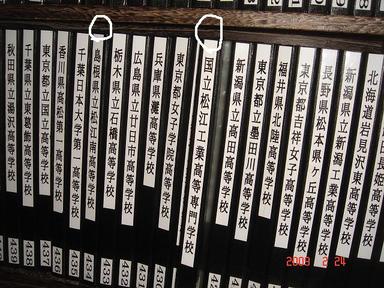 北海道岩見沢東高等学校
新潟県立新潟高等学校
長野県松本県ヶ丘高等学校
東京都吉祥女子高等学校
福井県北陸高等学校
東京都立墨田川高等学校
新潟県立高田高等学校
国立松江工業高等専門学校
東京都女子学院高等学校
兵庫県灘高等学校
広島県立廿日市高等学校
栃木県立石橋高等学校
島根県立松江南高等学校
千葉日本大学第一高等学校
香川県高松第一高等学校
東京都立国立高等学校
千葉県立東葛飾高等学校
秋田県立湯沢高等学校
430
431
432
433
434
435
436
437
439
2003 2 24